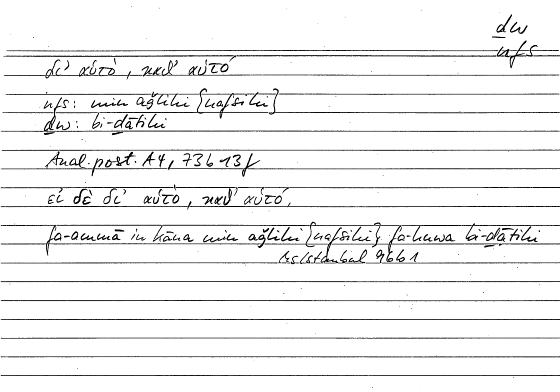 ḏw
nfs
δι' αὑτό, καθ' αὑτό
nfs: min aǧlihi {nafsihi}
ḏw: bi-ḏātihi
Anal. post. A4, 73b13f
εἰ δὲ δι' αὑτό, καθ' αὑτό.
fa-ammā in kāna min aǧlihi {nafsihi} fa-huwa bi-ḏātihi
Ms Istanbul 9661